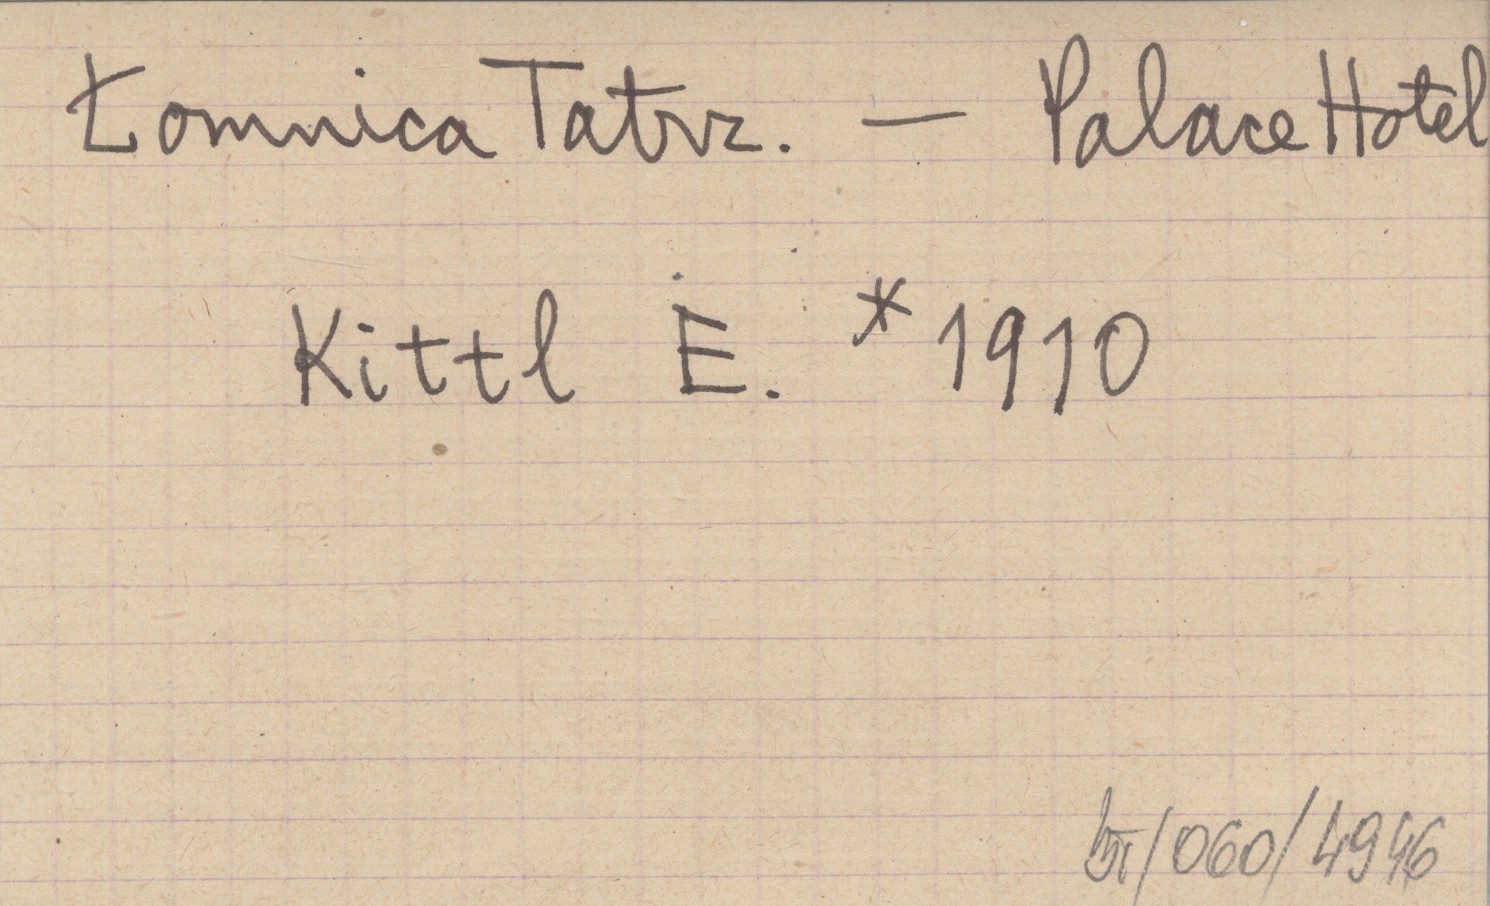 Łomnica Tatrz. — Palace Hotel
Kittl E. *1910
/060/4946